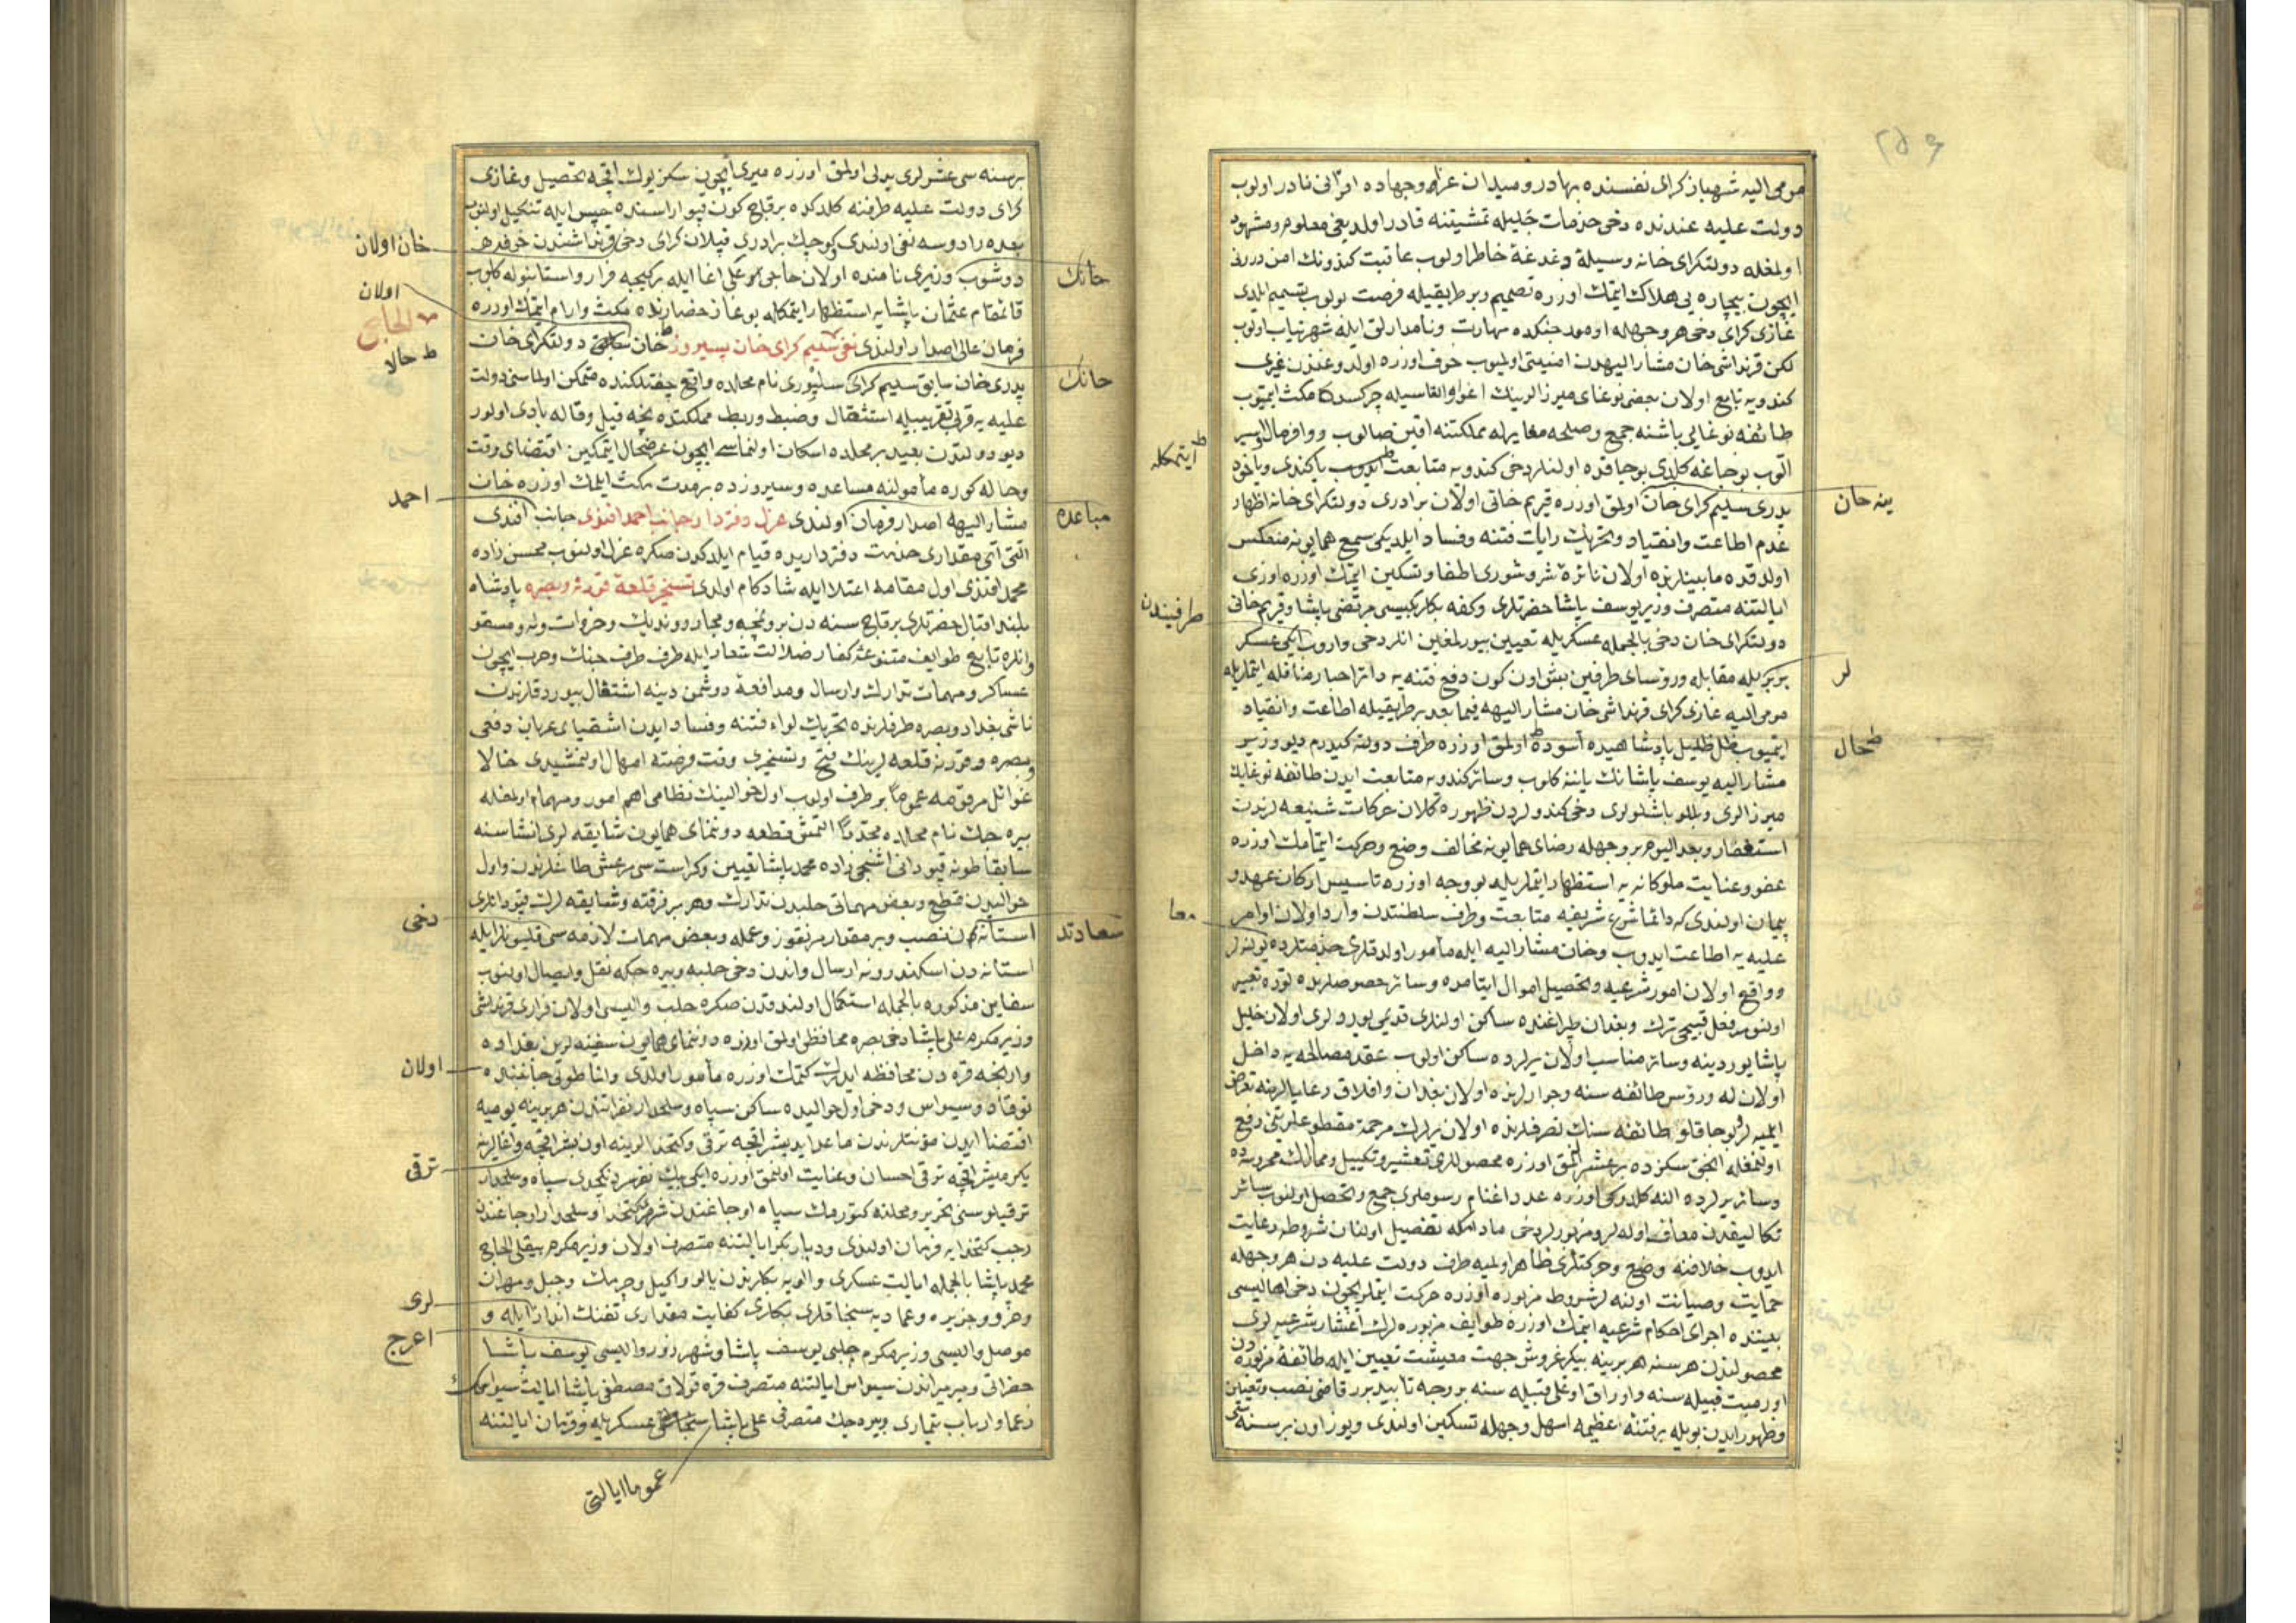 ٢٥٦
مومى اليه شهباز كراى نفسنده بهادر و ميدان غزا وجهاده اقرانى نادر اولوب
دولت عليه عندنده دخى خدمات جليله تمشيتنه قادر اولديغى معلوم و مشهود
اولمغله دولتكراى خانه وسيلهٔ دغدغهٔ خاطر اولوب عاقبت كندونك امن درونى
ايچون بيچاره يى هلاك ايتمك اوزره تصميم و بر طريقيله فرصت بولوب تسميم ايلدى
غازى كراى دخى هر وجهله اومود جنكده مهارت و نامدارلق ايله شهرتياب اولوب
لكن قرنداشى خان مشار اليهدن امنيتى اولميوب خوف اوزره اولدوغندن غيرى
كندويه تابع اولان بعضى نوغاى ميرزالرينك اغوا والقاسيله چركسده مكث ايتميوب
طائفهٔ نوغايى باشنه جمع و صلحه مغاير له مملكتنه اقين صالوب و وافر مال و اسير
ايتمكله
الوب بوجاغه كلدى بوجاقده اولنلر دخى كندويه متابعت ايدوب يا كندى و ياخود
پدرى سليم كراى خان اولمق اوزره قريم خانى اولان برادرى دولتكراى خانه اظهار
ينه خان
عدم اطاعت وانقياد وتحريك رايات فتنه وفساد ايلديكى سمع همايونه منعكس
اولدقده مابينلرنده اولان نائرهٔ شر و شورى اطفا و تسكين ايتمك اوزره اوزى
ايالتنه متصرف وزير يوسف پاشا حضرتلرى و كفه بكلربكيسى مرتضى پاشا و قريم خانى
طرفيندن
دولتكراى خان دخى بالجمله عسكريله تعيين بيورلمغين انلر دخى واروب ايكى عسكر
بر بريله مقابله و رؤساى طرفين بش اون كون دفع فتنه يه دائر احبار مناقله ايتملريله
لر
مومى اليه غازى كراى قرنداشى خان مشار اليهه فيما بعد بر طريقيله اطاعت وانقياد
ايتميوب ظل ظليل پادشاهيده آسوده اولمق اوزره طرف دولته كيدرم ديو وزير
حال
مشار اليه يوسف پاشانك ياننه كلوب و سائر كندويه متابعت ايدن طائفهٔ نوغايك
ميرزالرى و بللو باشلولرى دخى كندولردن ظهوره كلان حركات شنيعه لرندن
استغفار و بعد اليوم بر وجهله رضاى همايونه مخالف وضع و حركت ايتمامك اوزره
عفو و عنايت ملوكانه يه استظهار ايتملريله بو وجه اوزره تاسيس اركان عهد و
پيمان اولندى كه دائما شرع شريفه متابعت و طرف سلطنتدن وارد اولان اوامر
معا
عليه يه اطاعت ايدوب و خان مشار اليه ايله مأمور اولدقلرى خدمتلرده بولنه لر
و واقع اولان امور شرعيه و تحصيل اموال ايتامده و سائر خصوصلرنده توره تعبير
اولنور فعل قبيحى ترك و بغدان طپراغنده ساكن اولندى قديمى يوردلرى اولان خليل
پاشا يوردينه و سائر مناسب اولان يرلرده ساكن اولوب عقد مصالحه يه داخل
اولان له و روس طائفه سنه و جوارلرنده اولان بغدان و افلاق رعايالرينه تعرض
ايتميه لر بوجاقلو طائفه سنك تصرفلرنده اولان يرلرك مرحمة مقطوعلريتى رفع
اولنمغله انجق سكزده بر عشر النمق اوزره محصوللرى تعشير و تكييل و ممالك محروسه ده
و سائر يرلرده النه كلدوكى اوزره عدد اغنام رسوملرى جمع و تحصيل اولنوب سائر
تكاليفدن معاف اوله لر و مزبورلر دخى مادامكه تفصيل اولنان شروطه رعايت
ايدوب خلافنه وضع و حركتلرى ظاهر اولميه طرف دولت عليه دن هر وجهله
حمايت و صيانت اولنه لر شروط مزبوره اوزره حركت ايتملريچون دخى اهاليسى
بيننده اجراى احكام شرعيه ايتمك اوزره طوايف مزبوره لرك اعشار شرعيه لرى
محصولندن هر سنه هر برينه بيكر غروش جهت معيشت تعيين ايله طائفهٔ مزبوره دن
اورميت قبيله سنه و اوراق اوغلى قبيله سنه بر وجه تأبيد برر قاضى نصب و تعيين
و ظهور ايدن بويله بر فتنهٔ عظيمه اسهل وجهله تسكين اولندى و يوز اون بر سنه سى
برسنه سى عشرلرى بدلى اولمق اوزره ميرى ايچون سكز يوك اقچه تحصيل و غازى
كراى دولت عليه طرفنه كلدكده بر قاچ كون قپو اراسنده حبس ايله تنكيل اولنوب
بعده رادوسه نفى اولندى كوچك برادرى قپلان كراى دخى قرنداشندن خوفه
خان اولان
دوشوب وزيرى نامنده اولان حاجى مرعلى اغا ايله بر كيجه فرار و استانبوله كلوب
خانك
قائمقام عثمان پاشايه استظهار ايتمكله بوغاز حصارنده مكث و ارام ايتمك اوزره
اولان
الحاج
فرمان عالى اصدار اولندى نفى سليم كراى خان بسيروز خان سابق دولتكراى خان
حالا
پدرى خان سابق سليم كراى سليورى نام محلده واقع چفتلكنده متمكن اولماسى دولت
خانك
عليه يه قربى تقريبيله استثقال و ضبط و ربط مملكتده نچه قيل و قاله بادى اولور
ديو دولتدن بعيد بر محلده اسكان اولنماسى ايچون عرضحال ايتمكين اقتضاى وقت
و حاله كوره مأمولنه مساعده و سيروزده بر مدت مكث ايلمك اوزره خان
احمد
مشار اليهه اصدار فرمان اولندى عزل دفتردار جانب احمد افندى جانب افندى
مباعده
التى آى مقدارى خدمت دفترداريده قيام ايلدكدن صكره عزل اولنوب محسن زاده
محمد افندى اول مقامه اعتلا ايله شادكام اولدى تسخير قلعهٔ قورنه و بصره پادشاه
بلند اقبال حضرتلرى بر قاچ سنه دن برو نمچه و مجار و ونديك و خروات و له و مسقو
و انلره تابع طوايف متنوعهٔ كفار ضلالت شعار ايله طرف طرف جنك و حرب ايچون
عساكر و مهمات تدارك و ارسال و مدافعهٔ دوشمن دينه اشتغال بيوردقلرندن
ناشى بغداد و بصره طرفلرنده تحريك لواء فتنه و فساد ايدن اشقياى عربان دفعى
و بصره و قورنه قلعه لرينك فتح و تسخيرى وقت فرصته امهال اولنمشيدى حالا
غوائل مرقومه عموما بر طرف اولوب اول حوالينك نظامى اهم امور و مهمام اولمغله
بيره جك نام محلده مجددا التمش قطعه دوننماى همايون شايقه لرى انشاسنه
سابقا طونه قپودانى اشنجى زاده محمد پاشا تعيين و كراسته سى مرعش طاغلرندن و اول
حواليدن قطع و بعض مهماتى حلبدن تدارك و هر بر فرقته و شايقه لرك قپودانلرى
دخى
استانه دن نصب و بر مقدار مرنقوز و عمله و بعض مهمات لازمه سى قليونلر ايله
سعادتد
استانه دن اسكندرونه ارسال و اندن دخى حلبه و بيره جكه نقل و ايصال اولنوب
سفاين مذكوره بالجمله استكمال اولندقدن صكره حلب واليسى اولان فرارى قرنداشى
وزير مكرم على پاشا دخى بصره محافظى اولمق اوزره دوننماى همايون سفينه لرين بغداده
وارنجه قره دن محافظه ايدرك كتمك اوزره مأمور اولدى و اناطولى جانبنده
اولان
توقاد و سيواس و دخى اول حواليده ساكن سپاه و سلحدار نفراتندن هر برينه يوميه
اقتضا ايدن مؤنتلرندن ماعدا يديشر اقچه ترقى و كتخدالرينه اون بشر اقچه و اغالرينه
يكرميشر اقچه ترقى احسان و عنايت اولنمق اوزره ايكى بيك نفر سردنكچدى سپاه و سلحدار
ترقى
ترقيلوسى تحرير و محلنه كتورمك سپاه اوجاغندن شهرى كتخدا و سلحدار اوجاغندن
رجب كتخدايه فرمان اولندى و ديار بكر ايالتنه متصرف اولان وزير مكرم بيقلى الحاج
محمد پاشا بالجمله ايالت عسكرى و الويه بكلرندن پالو و اكيل و چرمك و جبل و مهران
و حزو و جزيره و عماديه سنجاقلرى بكلرى كفايت مقدارى تفنك انداز ايله و
لرى
موصل واليسى وزير مكرم چلبى يوسف پاشا و شهرزور واليسى يوسف پاشا
اعرج
حضراتى و ميرميراندن سيواس ايالتنه متصرف قره قولاق مصطفى پاشا ايالت سيواسك
زعما و ارباب تيمارى و بيره جك متصرفى على پاشا سنجاغى عسكريله و قرمان ايالتنه
عموما ايالتى